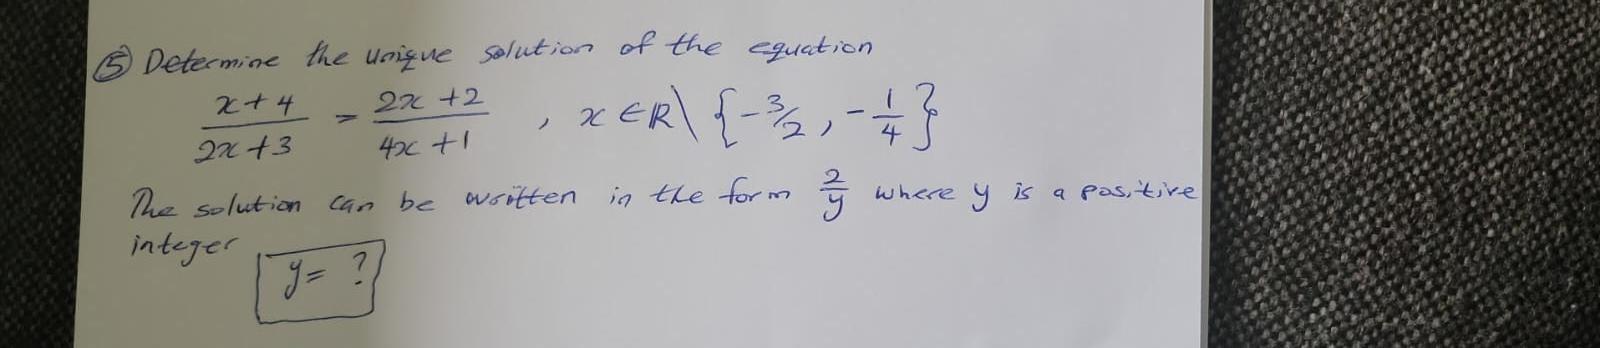 ⑤ Determine the unique solution of the equation
x+4/2x+3 = 2x+2/4x+1 , x ∈ R\ {-3/2, -1/4}
The solution can be written in the form 2/y where y is a positive
integer
y= ?